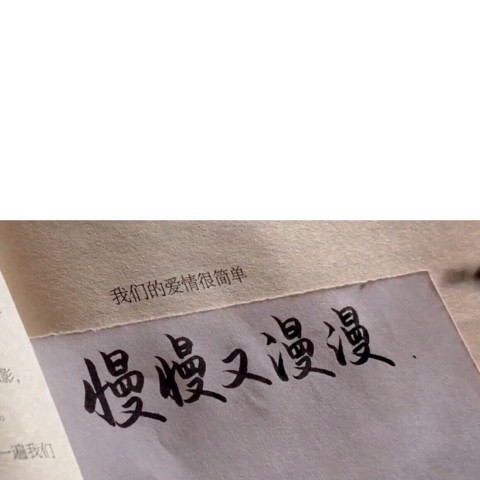 我们的爱情很简单
慢慢又漫漫.
影，
。
一遍我们